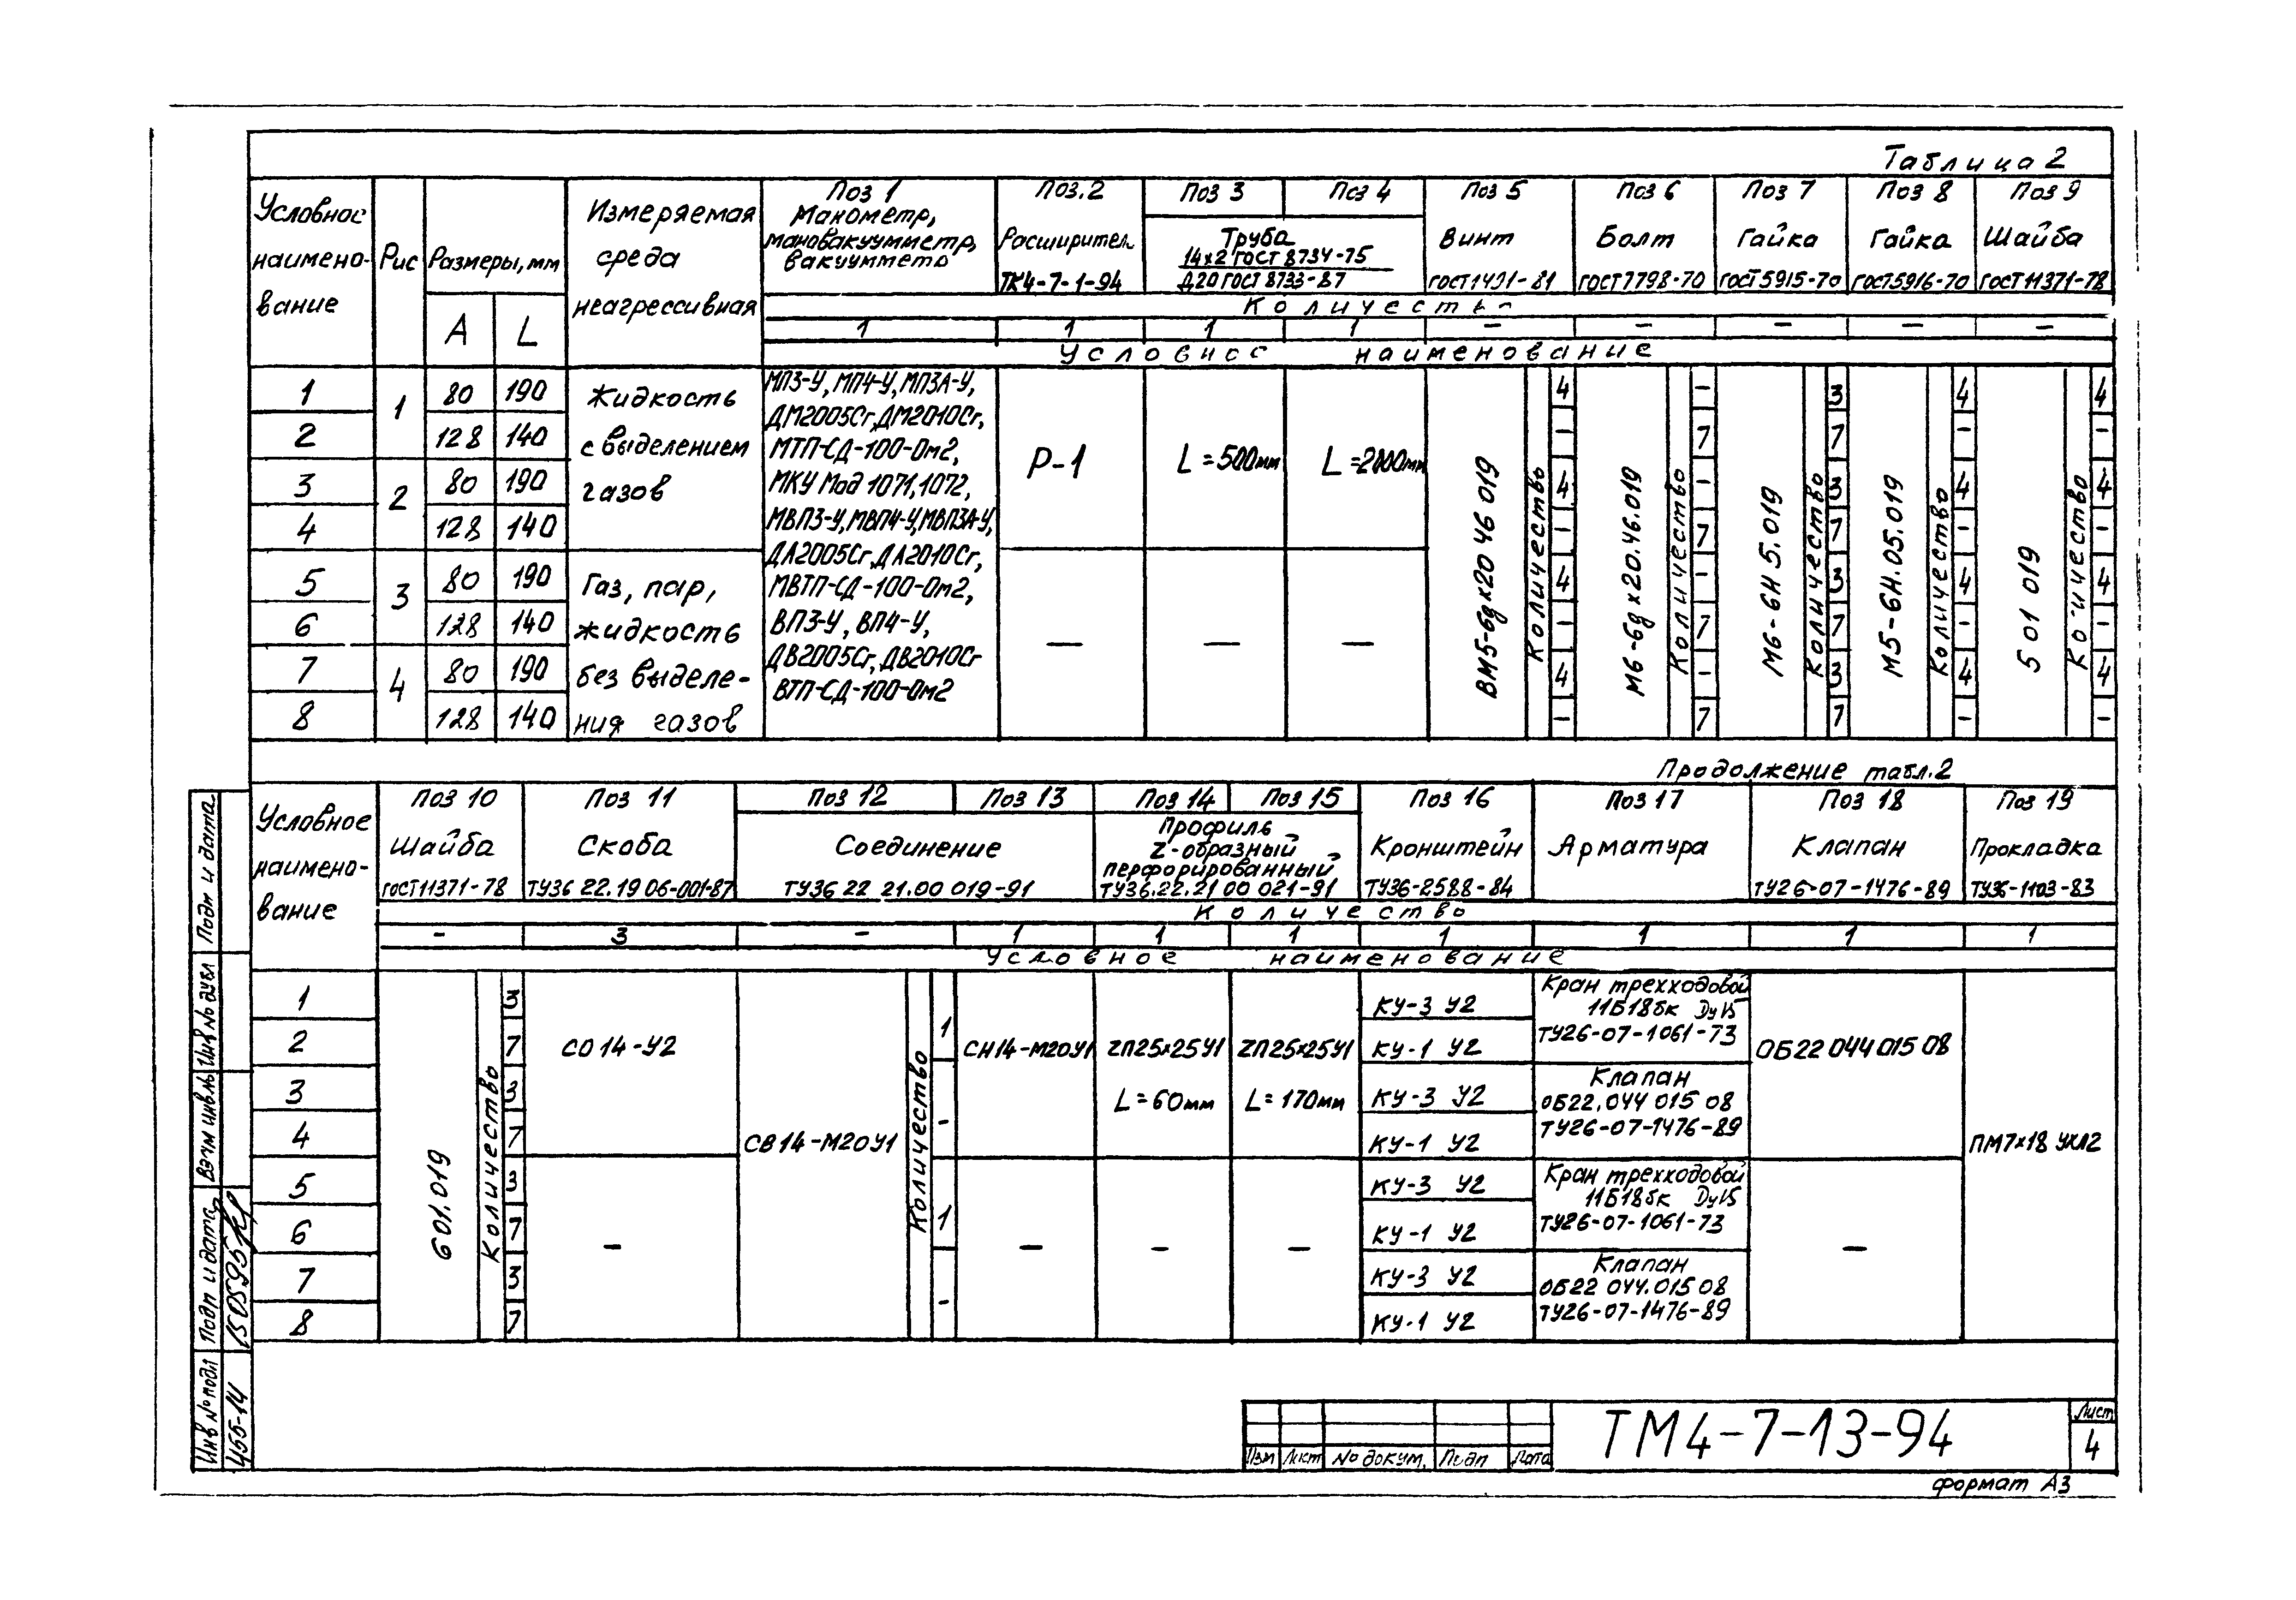 Таблица 2
Условное наимено- вание Рис Размеры, мм Измеряемая среда неагрессивная
А L
Поз 1 Манометр, мановакуумметр, вакуумметр
Поз.2 Расширител ТК4-7-1-94
Поз 3 Поз 4 Труба 14х2 ГОСТ 8734-75 Д20 ГОСТ 8733-87
Поз 5 Винт ГОСТ1491-81
Поз 6 Болт ГОСТ7798-70
Поз 7 Гайка ГОСТ5915-70
Поз 8 Гайка ГОСТ5916-70
Поз 9 Шайба ГОСТ11371-78
Количество
1 1 1 1 - - - - -
Условное наименование
1 1 80 190 4 - 3 4 4
2 128 140 - 7 7 - -
3 2 80 190 4 - 3 4 4
4 128 140 - 7 7 - -
5 3 80 190 4 - 3 4 4
6 128 140 - 7 7 - -
7 4 80 190 4 - 3 4 4
8 128 140 - 7 7 - -
Жидкость
с выделением
газов
Газ, пар,
жидкость
без выделе-
ния газов
МП3-У, МП4-У, МП3А-У,
ДМ2005Сг, ДМ2010Сг,
МТП-СД-100-Ом2,
МКУ Мод 1071, 1072,
МВП3-У, МВП4-У, МВП3А-У,
ДА2005Сг, ДА2010Сг,
МВТП-СД-100-Ом2,
ВП3-У, ВП4-У,
ДВ2005Сг, ДВ2010Сг
ВТП-СД-100-Ом2
Р-1 L=500мм L=2000мм
— — —
ВМ5-6gх20 46 019 Количество
М6-6gх20.46.019 Количество
М6-6Н 5.019 Количество
М5-6Н.05.019 Количество
5 01 019 Количество
Продолжение табл.2
Условное наимено- вание
Поз 10 Шайба ГОСТ11371-78
Поз 11 Скоба ТУ36 22.19 06-001-87
Поз 12 Поз 13 Соединение ТУ36 22 21.00 019-91
Поз 14 Поз 15 Профиль Z-образный перфорированный ТУ36.22.21 00 021-91
Поз 16 Кронштейн ТУ36-2588-84
Поз 17 Арматура
Поз 18 Клапан ТУ26-07-1476-89
Поз 19 Прокладка ТУ36-1103-83
Количество
- 3 - 1 1 1 1 1 1 1
Условное наименование
1 3 КУ-3 У2
2 7 КУ-1 У2
3 3 КУ-3 У2
4 7 КУ-1 У2
5 3 КУ-3 У2
6 7 КУ-1 У2
7 3 КУ-3 У2
8 7 КУ-1 У2
601.019 Количество
СО 14-У2
-
СВ 14-М20У1 Количество
1
-
1
-
СН14-М20У1
-
ZП25х25У1
L=60мм
-
ZП25х25У1
L=170мм
-
Кран трехходовой
11Б18бк Ду15
ТУ26-07-1061-73
Клапан
ОБ22.044 015 08
ТУ26-07-1476-89
Кран трехходовой
11Б18бк Ду15
ТУ26-07-1061-73
Клапан
ОБ22 044.015 08
ТУ26-07-1476-89
ОБ22 044 015 08
—
ПМ7х18 УХЛ2
Подп и дата
Инв № дубл
Взам инв №
Подп и дата
Инв № подл
455-14
Изм Лист № докум. Подп Дата
ТМ4-7-13-94
Лист
4
формат А3